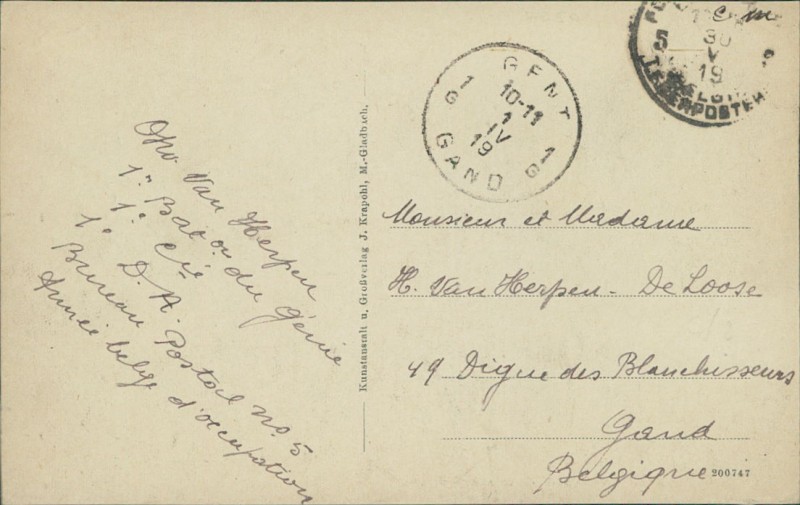 Van Herpen
1º Bat on du génie
1º Cie
1º D. A.
Bureau Postal no. 5
Armée belge d'occupation
Kunstanstalt u. Großverlag J. Krapohl, M.-Gladbach.
GENT
1 G
10-11
1
IV
19
1 G
GAND
c. m
5
30
V
19
Monsieur et Madame
H. Van Herpen - De Loose
49 Digue des Blanchisseurs
Gand
Belgique
200747